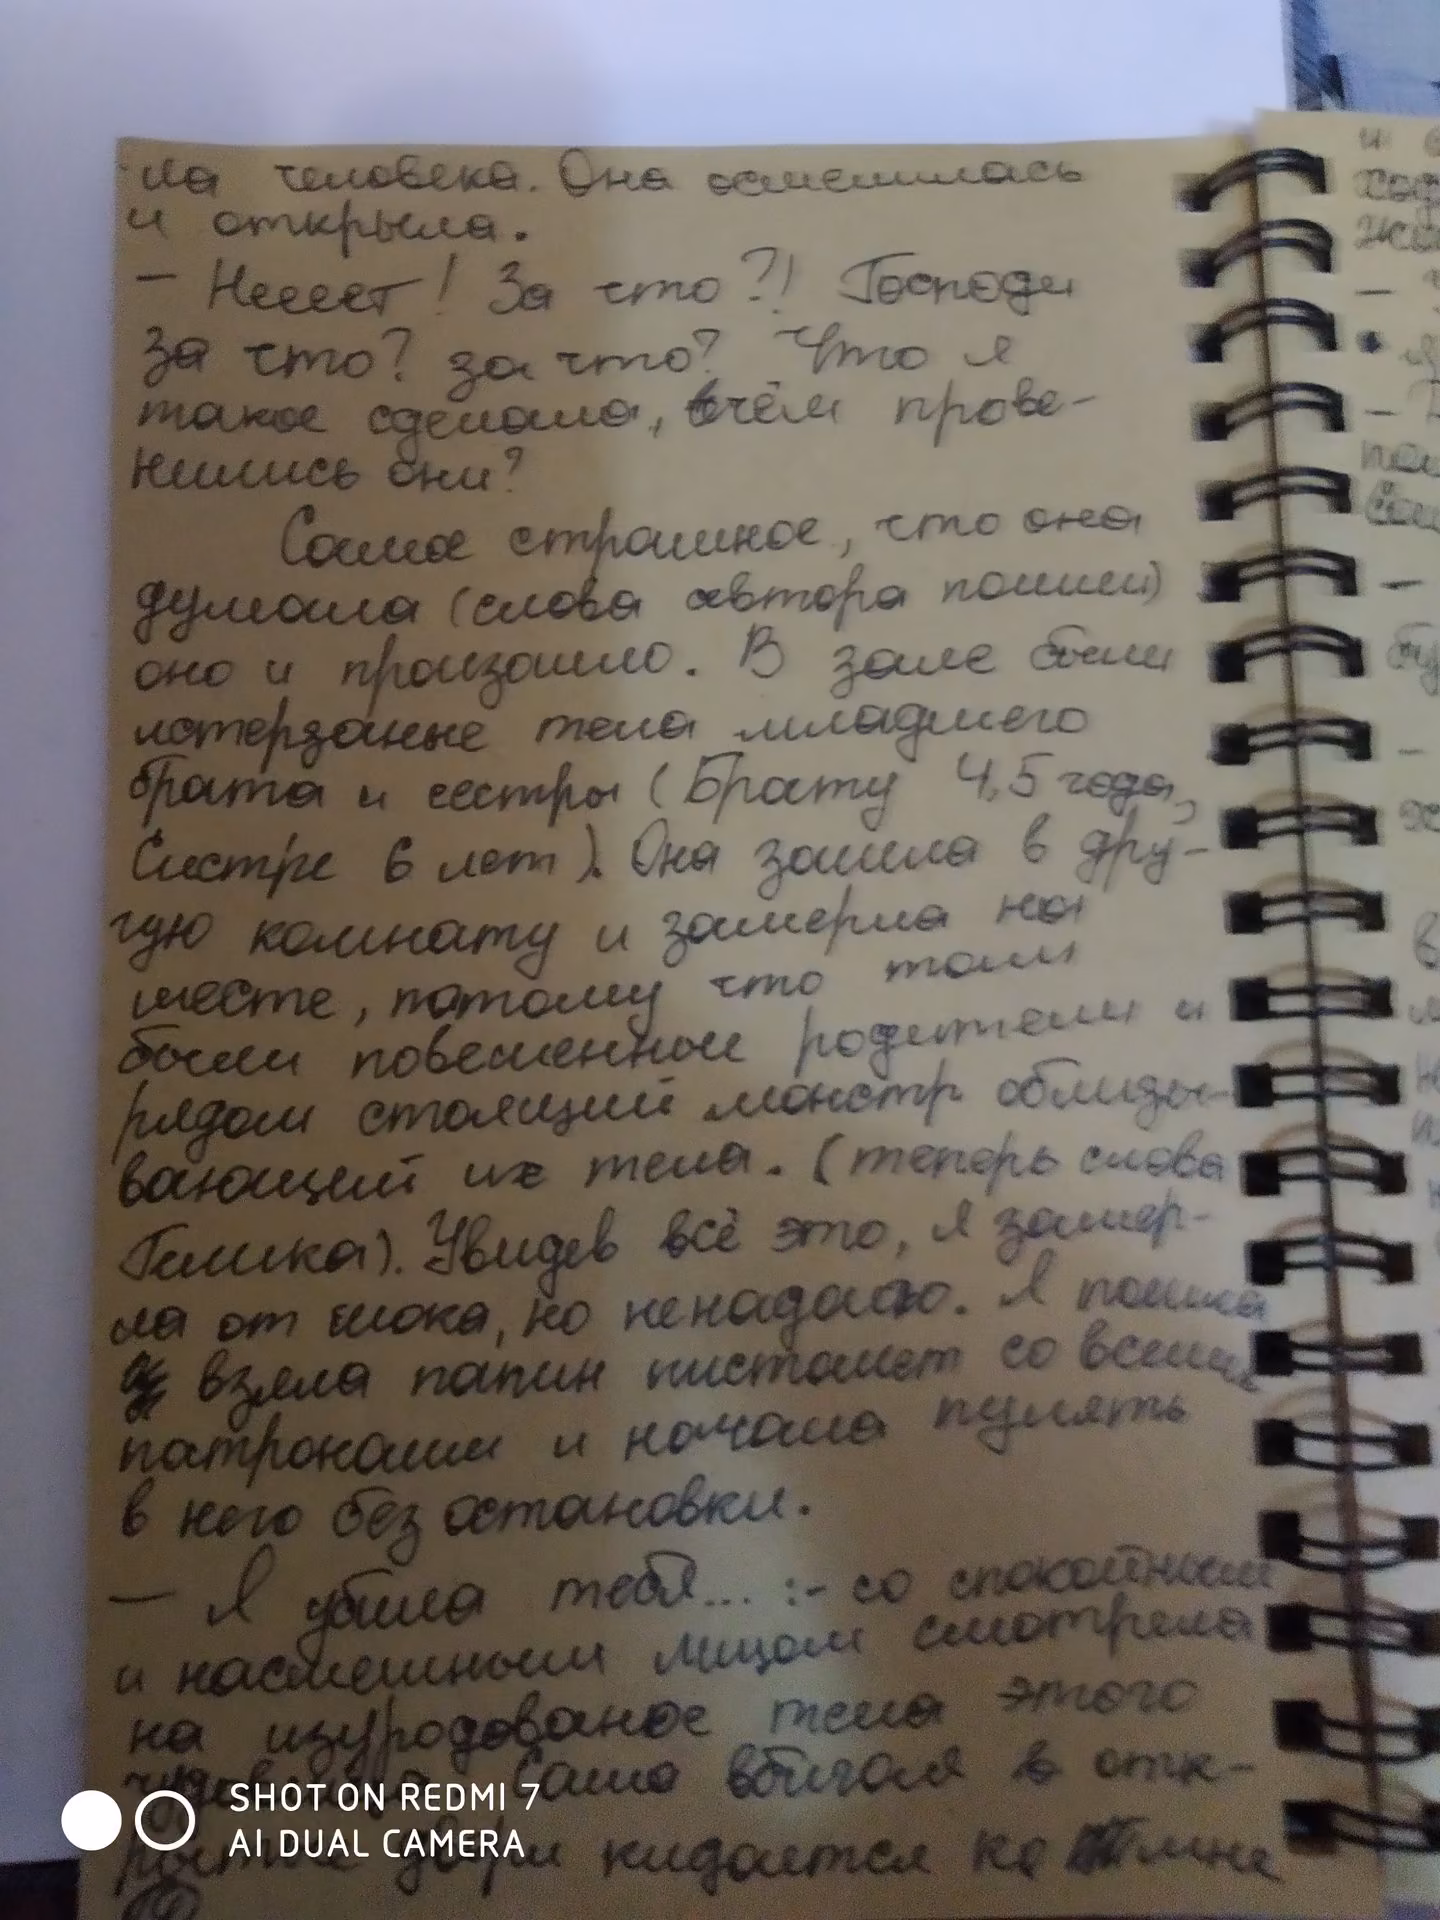 ла человека. Она осмешилась
и открыла.
- Неееет! За что?! Господи
за что? за что? Что я
такое сделала, вчём прове-
нились они?
Самое страшное, что она
думала (слова автора пошли)
оно и произошло. В зале были
истерзаные тела младшего
брата и сестры (Брату 4,5 года,
Систре 6 лет). Она зашла в дру-
гую комнату и замерла на
месте, потому что там
были повешенные родители и
рядом стоящий монстр облизы-
вающий их тела. (теперь слова
Увидев всё это, я замер-
ла от шока, но ненадолго. Я пошла
взяла папин пистолет со всеми
патронами и начала пулять
в него без остановки.
— Я убила тебя... :- со спокойным
и насмешным лицом смотрела
на изуродованое тела этого
Саша вбигая в отк-
двери кидается ко
SHOT ON REDMI 7
AI DUAL CAMERA
и
ход